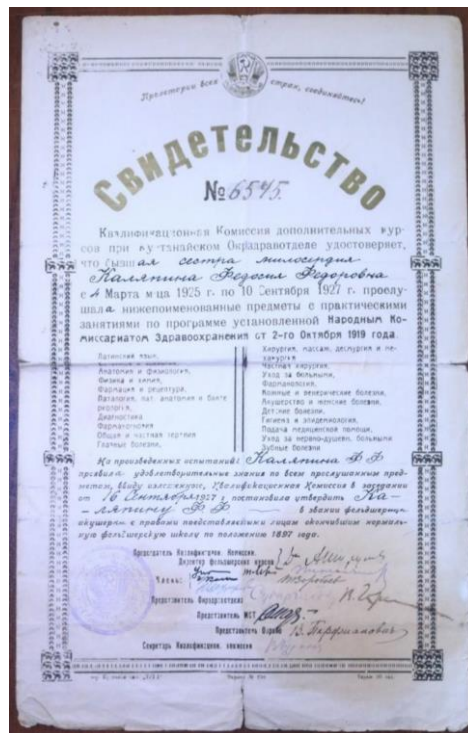 Пролетарии всех стран, соединяйтесь!
Свидетельство
№ 6545.
Квалификационная Комиссия дополнительных кур-
сов при Кустанайском Окрздравотделе удостоверяет,
что бывшая сестра милосердия
Каляпина Федосия Федоровна
с 4 Марта м-ца 1925 г. по 10 Сентября 1927 г. прослу-
шала нижепоименованные предметы с практическими
занятиями по программе установленной Народным Ко-
миссариатом Здравоохранения от 2-го Октября 1919 года.
Латинский язык,
Анатомия и физиология,
Физика и химия,
Фармация и рецептура,
Патология, пат. анатомия и бакте
риология,
Диагностика
Фармакогнозия
Общая и частная терапия
Глазные болезни,
Хирургия, массаж, десмургия и ме-
ханургия
Частная хирургия,
Уход за больными,
Фармакология,
Кожные и венерические болезни,
Акушерство и женские болезни,
Детские болезни,
Гигиена и эпидемиология,
Подача медицинской помощи,
Уход за нервно-душевн. больными
Зубные болезни
На произведенных испытаниях Каляпина Ф Ф
проявила удовлетворительные знания по всем прослушанным пред-
метам, Ввиду изложенного, Квалификационная Комиссия в заседании
от 16 Сентября 1927 г. постановила утвердить Ка-
ляпину Ф Ф в звании фельдшерицы
акушерки с правами предоставляемыми лицам окончившим нормаль-
ную фельдшерскую школу по положению 1897 года.
Председатель Квалификацион. Комиссии,
Директор фельдшерских курсов
Члены:
Представитель Окрздравотдела
Представитель МСТ
Представитель Окроно
Секретарь Квалификацион. комиссии